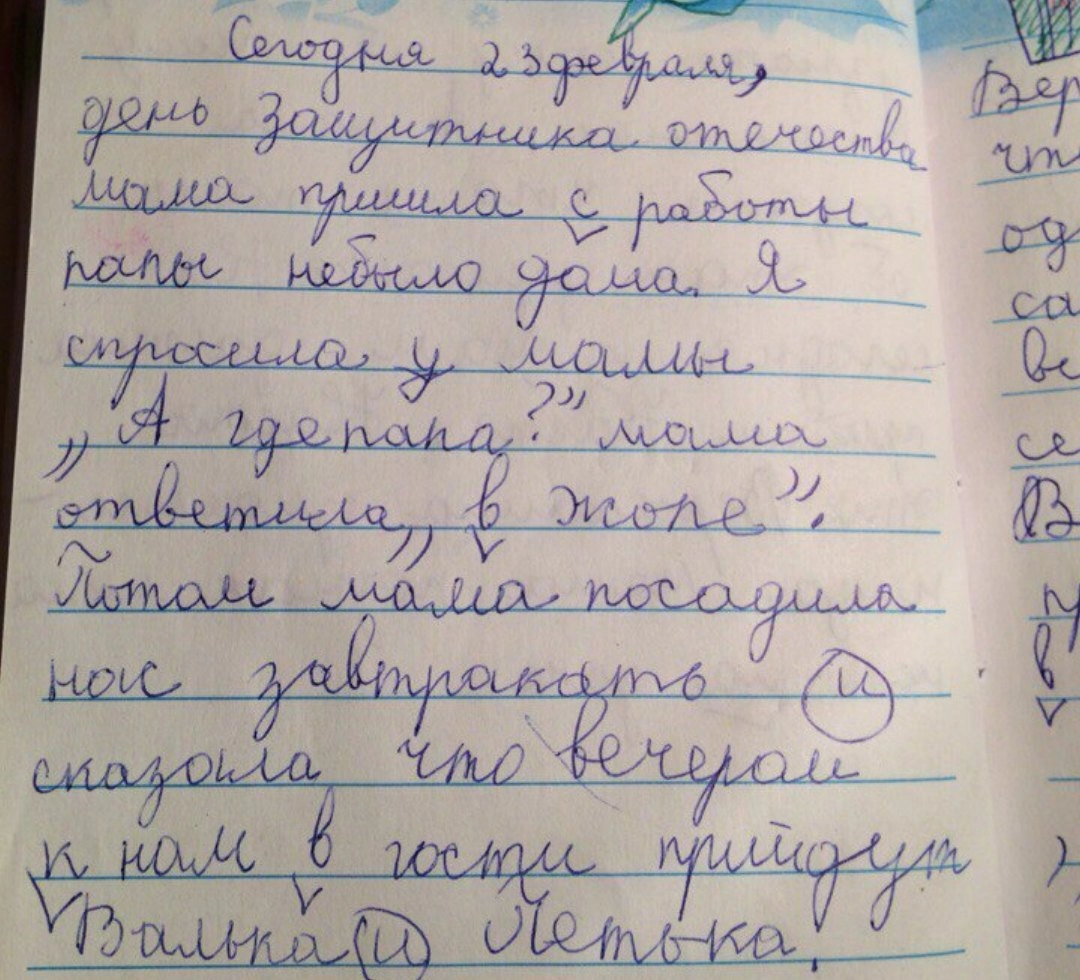 Сегодня 23 февраля,
день Защитника отечества
мама пришла с работы
папы небыло дома. Я
спросила у мамы
„А где папа?” мама
ответила „в жопе”.
Потом мама посадила
нас завтракать и
сказала что вечером
к нам в гости прийдут
Валька и Петька.
Вер
что
од
са
ве
се
В
в